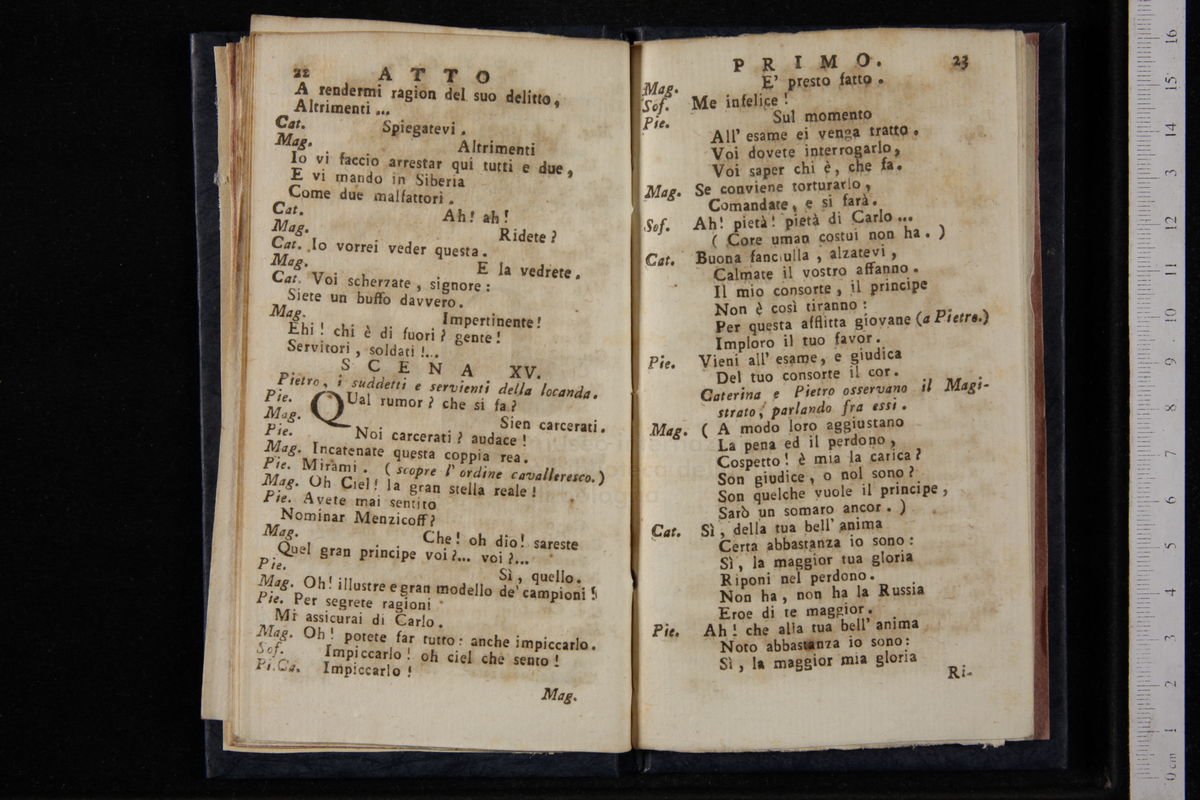 22 ATTO
A rendermi ragion del suo delitto,
Altrimenti ...
Cat. Spiegatevi.
Mag. Altrimenti
Io vi faccio arrestar qui tutti e due,
E vi mando in Siberia
Come due malfattori.
Cat. Ah! ah!
Mag. Ridete?
Cat. Io vorrei veder questa.
Mag. E la vedrete.
Cat. Voi scherzate, signore:
Siete un buffo davvero.
Mag. Impertinente!
Ehi! chi è di fuori? gente!
Servitori, soldati!...
SCENA XV.
Pietro, i suddetti e servienti della locanda.
Pie. QUal rumor? che si fa?
Mag. Sien carcerati.
Pie. Noi carcerati? audace!
Mag. Incatenate questa coppia rea.
Pie. Mirami. (scopre l'ordine cavalleresco.)
Mag. Oh Ciel! la gran stella reale!
Pie. Avete mai sentito
Nominar Menzicoff?
Mag. Che! oh dio! sareste
Quel gran principe voi?... voi?...
Pie. Sì, quello.
Mag. Oh! illustre e gran modello de' campioni!
Pie. Per segrete ragioni
Mi assicurai di Carlo.
Mag. Oh! potete far tutto: anche impiccarlo.
Sof. Impiccarlo! oh ciel che sento!
Pi.Ca. Impiccarlo!
Mag.
PRIMO. 23
Mag. E' presto fatto.
Sof. Me infelice!
Pie. Sul momento
All' esame ei venga tratto.
Voi dovete interrogarlo,
Voi saper chi è, che fa.
Mag. Se conviene torturarlo,
Comandate, e si farà.
Sof. Ah! pietà! pietà di Carlo ...
( Core uman costui non ha. )
Cat. Buona fanciulla, alzatevi,
Calmate il vostro affanno.
Il mio consorte, il principe
Non è così tiranno:
Per questa afflitta giovane (a Pietro.)
Imploro il tuo favor.
Pie. Vieni all' esame, e giudica
Del tuo consorte il cor.
Caterina e Pietro osservano il Magi-
strato, parlando fra essi.
Mag. ( A modo loro aggiustano
La pena ed il perdono,
Cospetto! è mia la carica?
Son giudice, o nol sono?
Son quelche vuole il principe,
Sarò un somaro ancor. )
Cat. Sì, della tua bell' anima
Certa abbastanza io sono:
Sì, la maggior tua gloria
Riponi nel perdono.
Non ha, non ha la Russia
Eroe di te maggior.
Pie. Ah! che alla tua bell' anima
Noto abbastanza io sono:
Sì, la maggior mia gloria
Ri-
0 cm 1 2 3 4 5 6 7 8 9 10 11 12 3 14 15 16